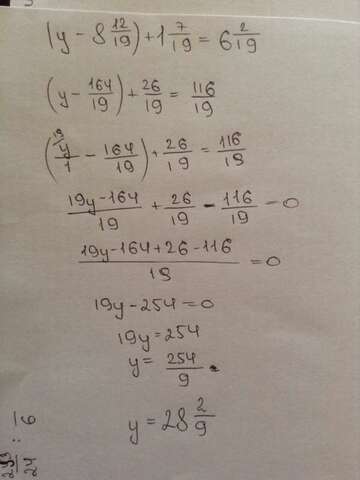 (y - 8 12/19) + 1 7/19 = 6 2/19
(y - 164/19) + 26/19 = 116/19
(19 y/1 - 164/19) + 26/19 = 116/19
19y-164/19 + 26/19 - 116/19 = 0
19y-164+26-116/19 = 0
19y-254=0
19y=254
y= 254/9
y=28 2/9